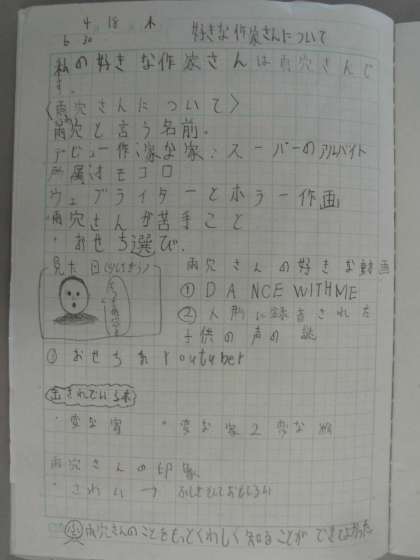 4 18 木
6 30
好きな作家さんについて
私の好きな作家さんは雨穴さんで
す。
〈雨穴さんについて〉
雨穴と言う名前。
デビュー作:変な家:スーパーのアルバイト
所属はオモコロ
ウェブライターとホラー作画
雨穴さんが苦手こと
・おせち選び.
見た目
雨穴さんの好きな動画
① DANCE WITH ME
② 人形に録音された
子供の声の謎
③ おせちあYoutuber
出されている本
・変な家 ・変な家2 変な絵
雨穴さんの印象
・こわい →
雨穴さんのことをもっとくわしく知ることができてよかった